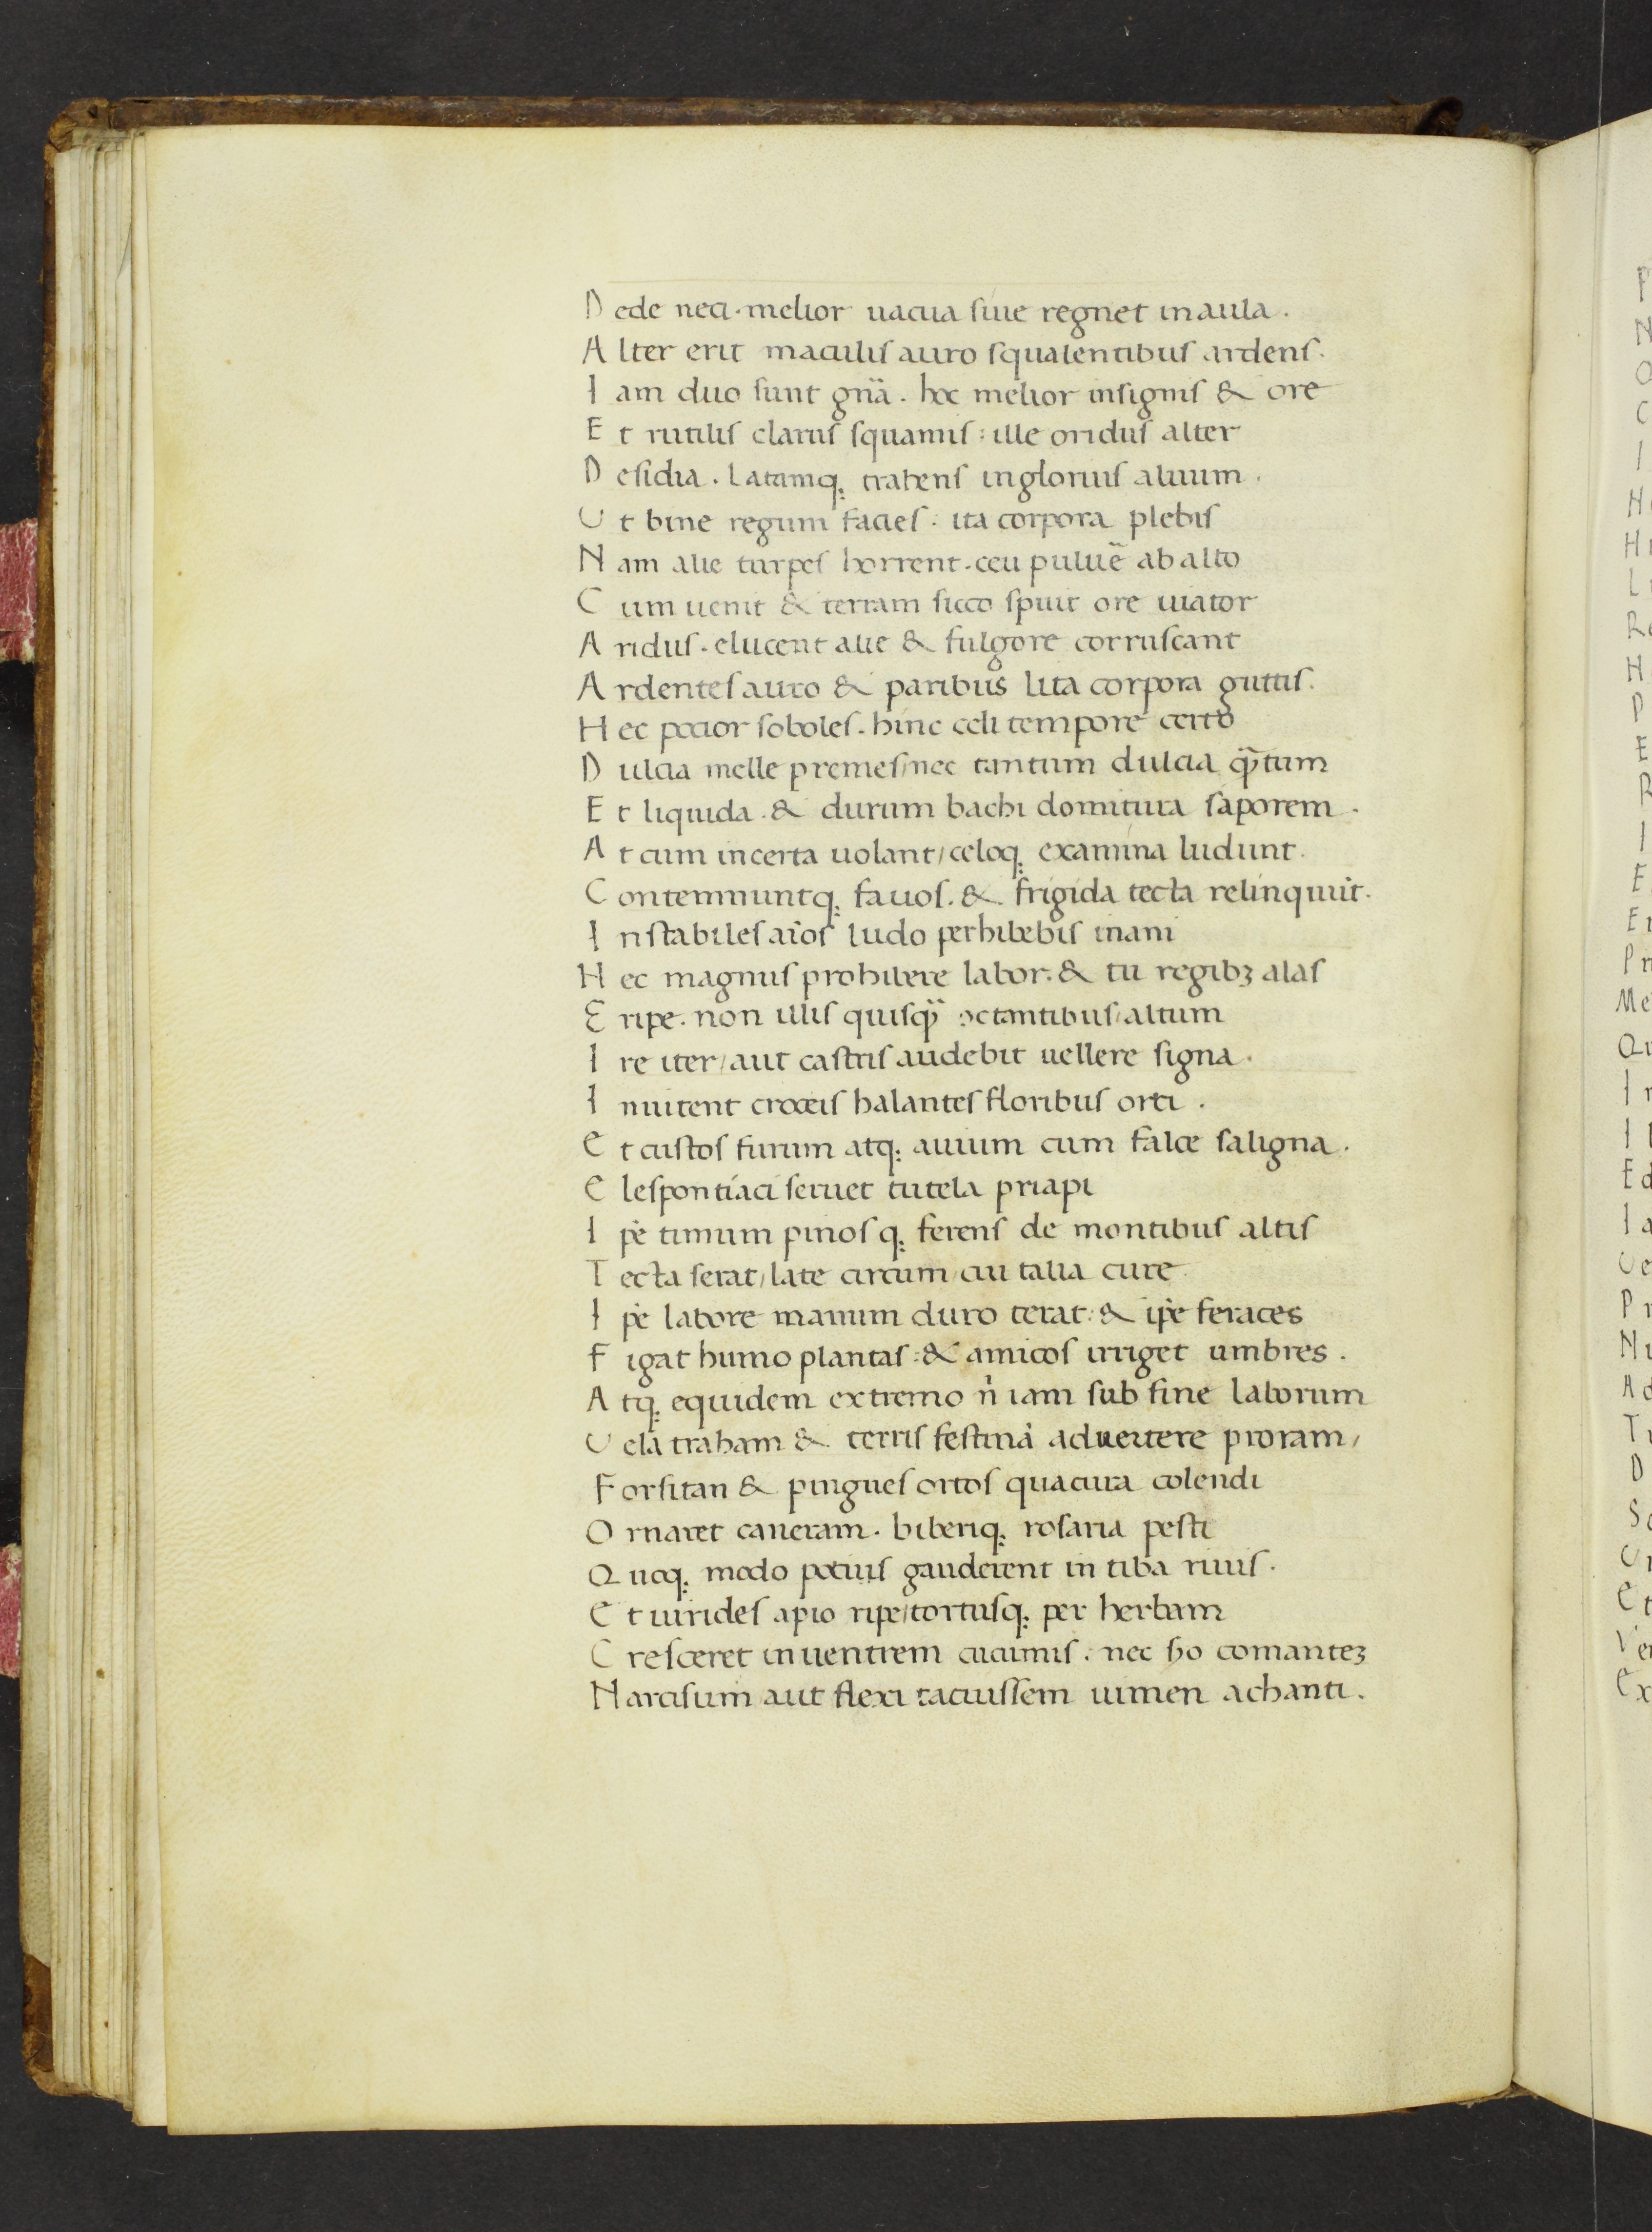 D ede neci · melior uacua siue regnet in aula .
A lter erit maculis auro squalentibus ardens .
I am duo sunt gnã . hoc melior insignis & ore
E t rutilis clarus squamis : ille oridus alter
D esidia . Latamq; trahens inglorius aluum .
U t bine regum facies : ita corpora plebis
N am alie turpes horrent . ceu puluẽ ab alto
C um uenit & terram sicco spuit ore uiator
A ridus . elucent alie & fulgore corruscant
A rdentes auro & paribus lita corpora guttis .
H ec pocior soboles . hinc celi tempore certo
D ulcia melle premes / nec tantum dulcia q̃tum
E t liquida . & durum bachi domitura saporem .
A t cum incerta uolant / celoq; examina ludunt .
C ontemnuntq; fauos . & frigida tecta relinquũt .
I nstabiles aĩos ludo perhibebis inani
H ec magnus prohibere labor : & tu regibꝫ alas
E ripe . non illis quisq̃ octantibus / altum
I re iter / aut castris audebit uellere signa .
I nuitent croceis halantes floribus orti .
E t custos furum atq; auium cum falce saligna .
E lespontiaci seruet tutela priapi
I pẽ timum pinosq; ferens de montibus altis
T ecta serat / late circum / cui talia cure
I pẽ labore manum duro terat : & ipẽ feraces
F igat humo plantas : & amicos irriget umbres .
A tq; equidem extremo ñ iam sub fine laborum
U ela traham & terris festinã aduertere proram /
F orsitan & pingues ortos qua cura colendi
O rnaret canerem . biberiq; rosaria pesti
Q uoq; modo potius gauderent intiba riuis .
E t uirides apio ripe / tortusq; per herbam
C resceret in uentrem cucumis : nec ẜo comanteꝫ
N arcisum aut flexi tacuissem uimen achanti .